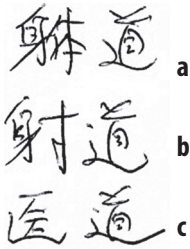 躰道 a
射道 b
医道 c